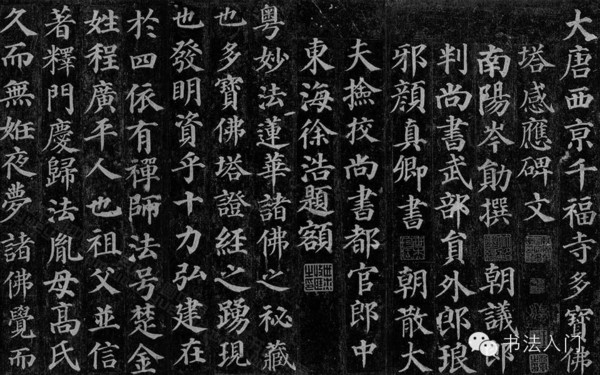 大唐西亰千福寺多寶佛
塔感應碑文
南陽岑勛撰 朝議郎
判尚書武部貟外郎琅
邪顏真卿書 朝散大
夫撿挍尚書都官郎中
東海徐浩題額
粵妙法蓮華諸佛之秘藏
也多寶佛塔證経之踴現
也發明資乎十力弘建在
於四依有禪師法号楚金
姓程廣平人也祖父並信
著釋門慶歸法胤母髙氏
久而無妊夜夢諸佛覺而
书法入门